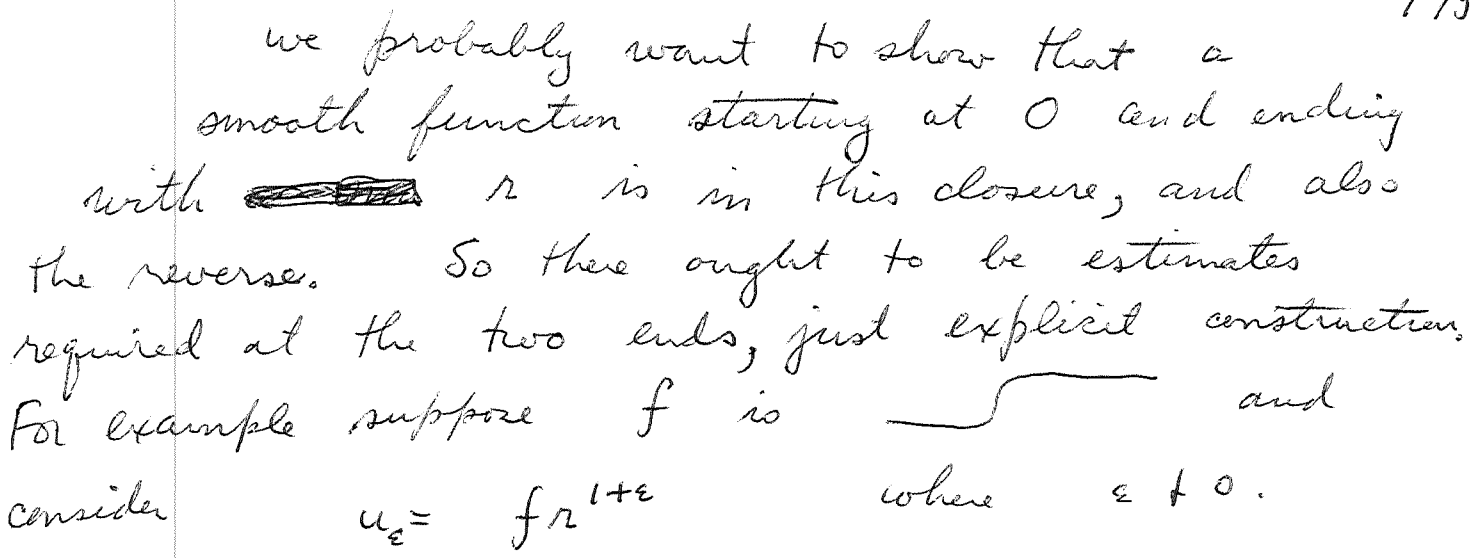 we probably want to show that a
smooth function starting at 0 and ending
with r is in this closure, and also
the reverse. So there ought to be estimates
required at the two ends, just explicit construction.
For example suppose f is and
consider u_ε = f r^{1+ε} where ε ↓ 0.